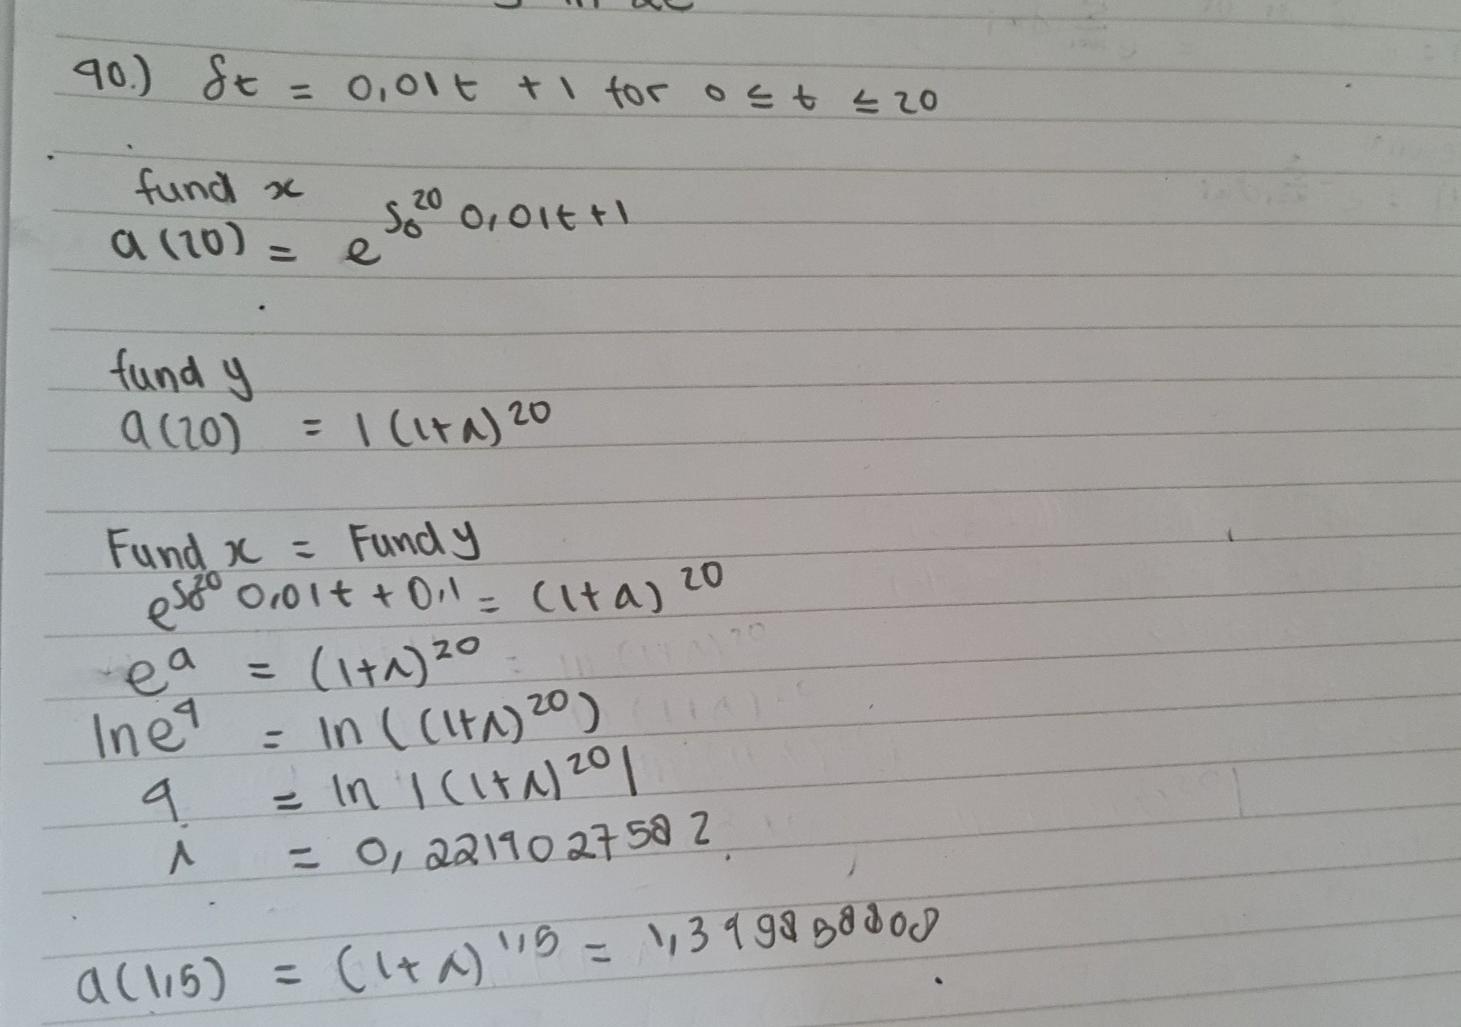 90.) δt = 0,01t + 1 for 0 ≤ t ≤ 20
fund x
a(20) = e^∫₀²⁰ 0,01t+1
fund y
a(20) = 1(1+i)^20
Fund x = Fund y
e^∫₀²⁰ 0,01t + 0,1 = (1+i)^20
e^4 = (1+i)^20
ln e^4 = ln((1+i)^20)
4 = ln|(1+i)^20|
i = 0,2214027582
a(1,5) = (1+i)^1,5 = 1,349858808